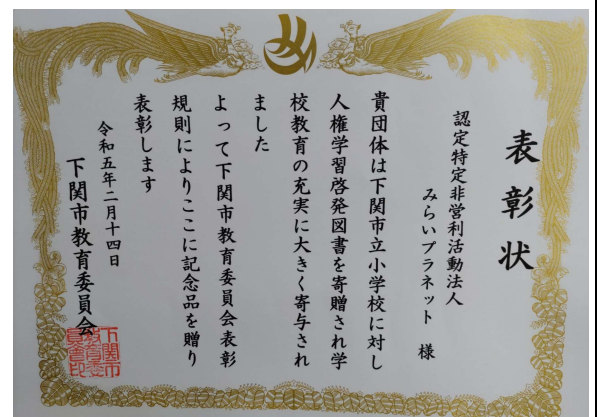 表彰状
認定特定非営利活動法人
みらいプラネット 様
貴団体は下関市立小学校に対し
人権学習啓発図書を寄贈され学
校教育の充実に大きく寄与され
ました
よって下関市教育委員会表彰
規則によりここに記念品を贈り
表彰します
令和五年二月十四日
下関市教育委員会
下関市
教育委
員会印